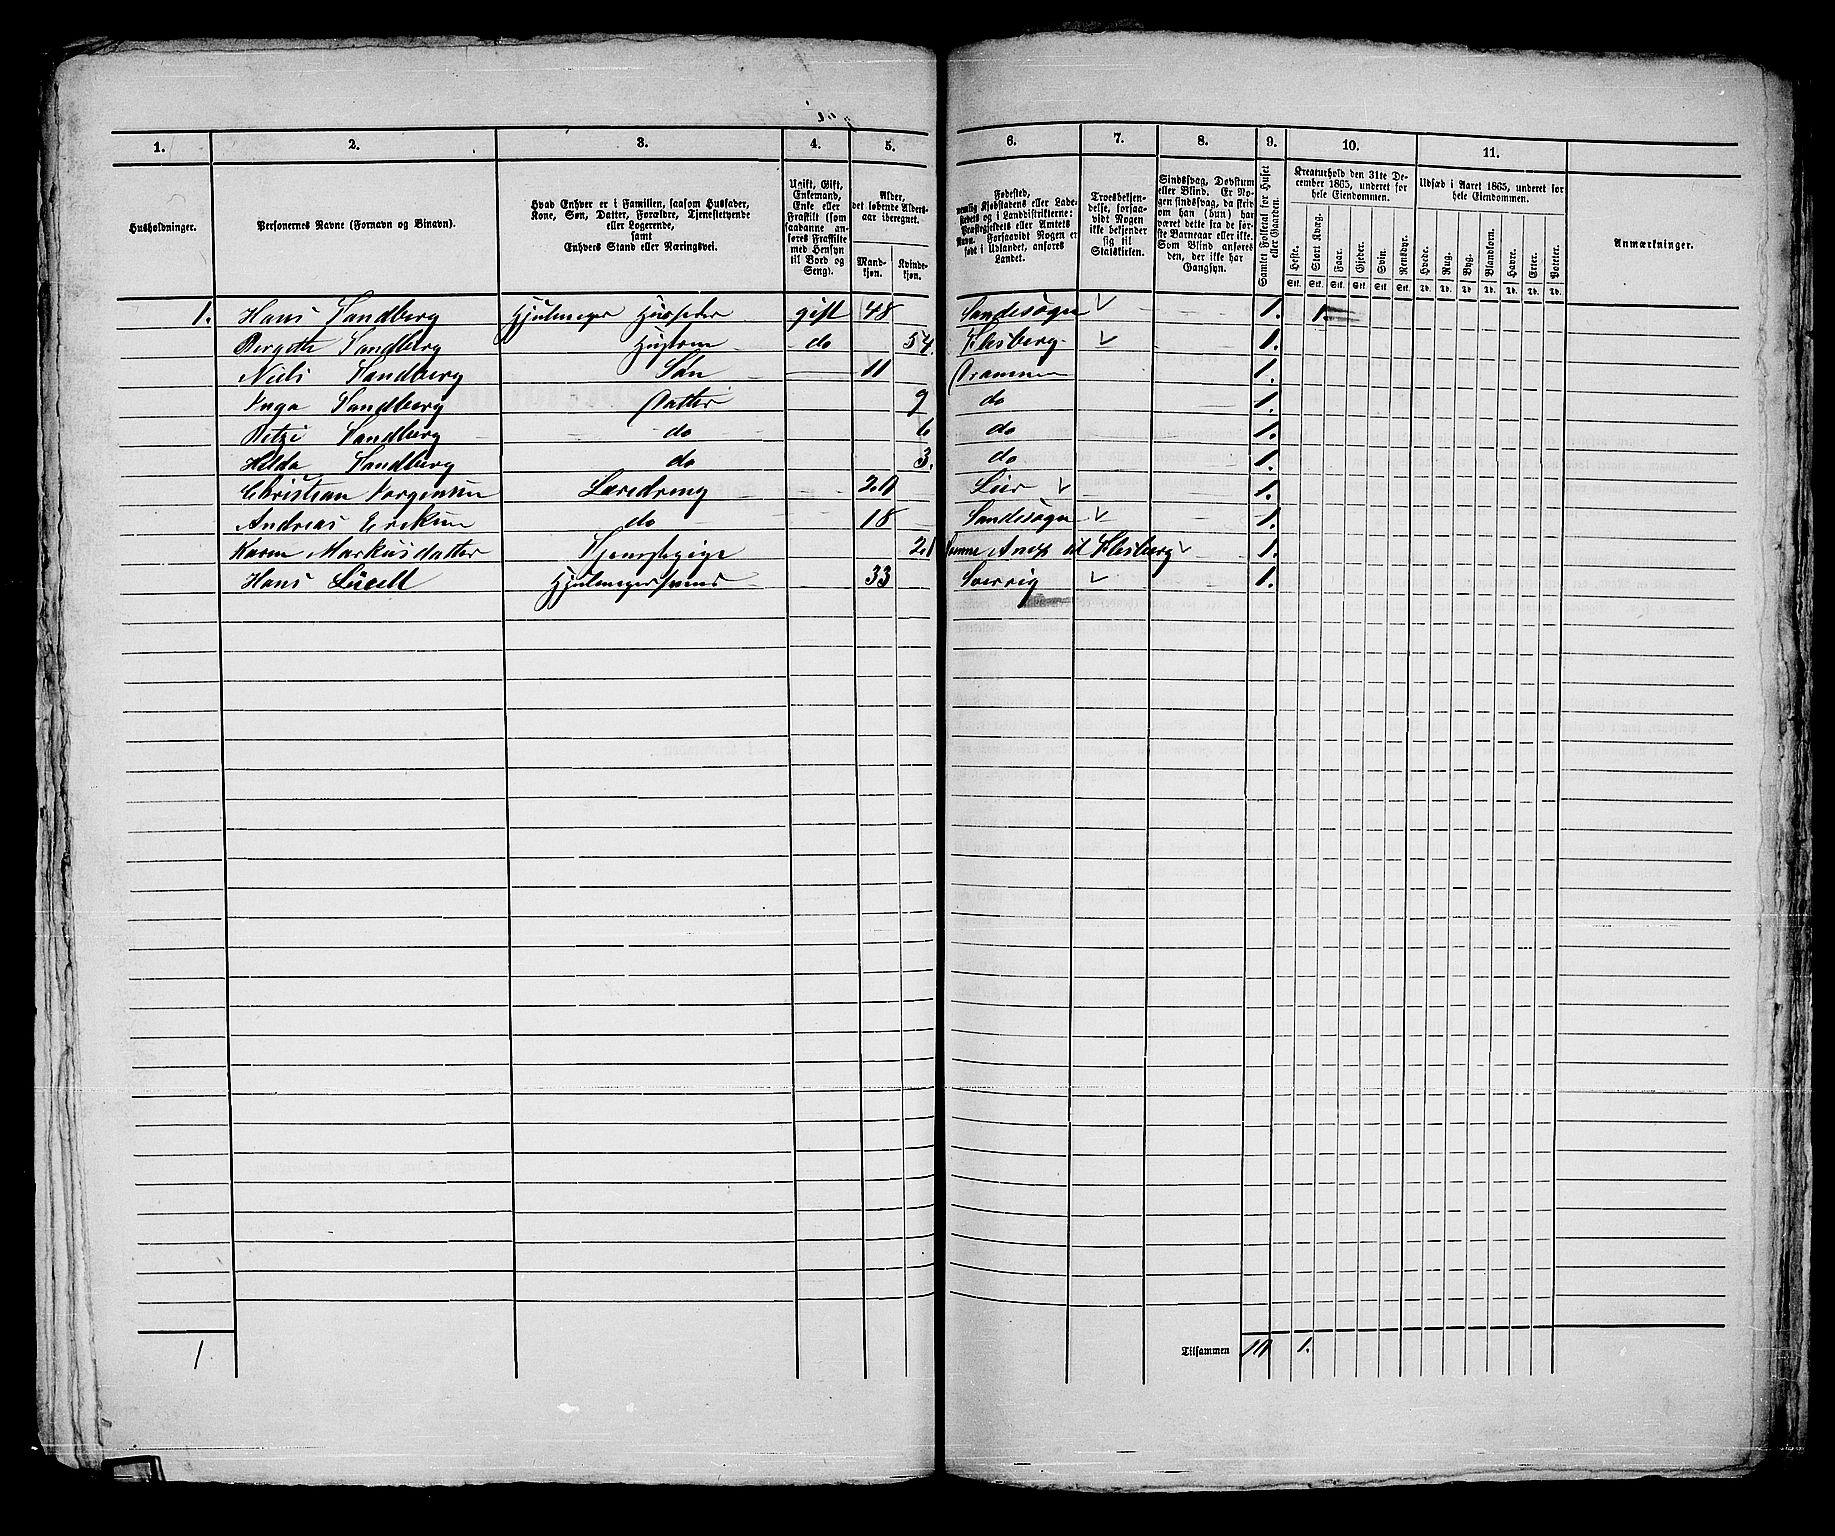 1. 2. 3. 4. 5. 6. 7. 8. 9. 10. 11.
Husholdninger.
Personernes Navne (Fornavn og Binavn).
Hvad Enhver er i Familien, saasom Husfader,
Kone, Søn, Datter, Forældre, Tjenestetyende
eller Logerende,
samt
Enhvers Stand eller Næringsvei.
Ugift, Gift,
Enkemand,
Enke eller
Fraskilt (som
saadanne an-
føres Fraskilte
med Hensyn
til Bord og
Seng).
Alder,
det løbende Alders-
aar iberegnet.
Mand-
kjøn.
Kvinde-
kjøn.
Fødested,
nemlig Kjøbstadens eller Lade-
stedets og i Landdistrikterne:
Præstegjeldets eller Amtets
Navn. Forsaavidt Nogen er
født i Udlandet, anføres
Landet.
Troesbekjen-
delse, forsaa-
vidt Nogen
ikke bekjender
sig til
Statskirken.
Sindssvag, Døvstum
eller Blind. Er No-
gen sindssvag, da skriv
om han (hun) har
været dette fra de før-
ste Barneaar eller ikke.
Som Blind anføres
den, der ikke har
Gangsyn.
Samlet Folketal for Huset
eller Gaarden.
Kreaturhold den 31te De-
cember 1865, underet for
hele Eiendommen.
Heste. Stort Kvæg. Faar. Gjeder. Svin. Rensdyr.
Stk. Stk. Stk. Stk. Stk. Stk.
Udsæd i Aaret 1865, underet for
hele Eiendommen.
Hvede. Rug. Byg. Blandkorn. Havre. Erter. Poteter.
Td. Td. Td. Td. Td. Td. Td.
Anmærkninger.
1. Hans Sandberg Hjulmager Husfader gift 48 Sandesogn 1. 1
Bergethe Sandberg Hustrue do 54. Flesberg 1.
Niels Sandberg Søn 11 Drammen 1.
Inga Sandberg Datter 9 do 1.
Betzi Sandberg do 6 do 1.
Hilda Sandberg do 3. do 1.
Christian Jorgensen Læredreng 20 Lier 1.
Andreas Ereksen do 18 Sandesogn 1.
Karen Markusdatter Tjenestepige 20 Anex til Flesberg 1.
Hans Hjulmagersvend 33 Sverrig 1.
1. Tilsammen 10 1.